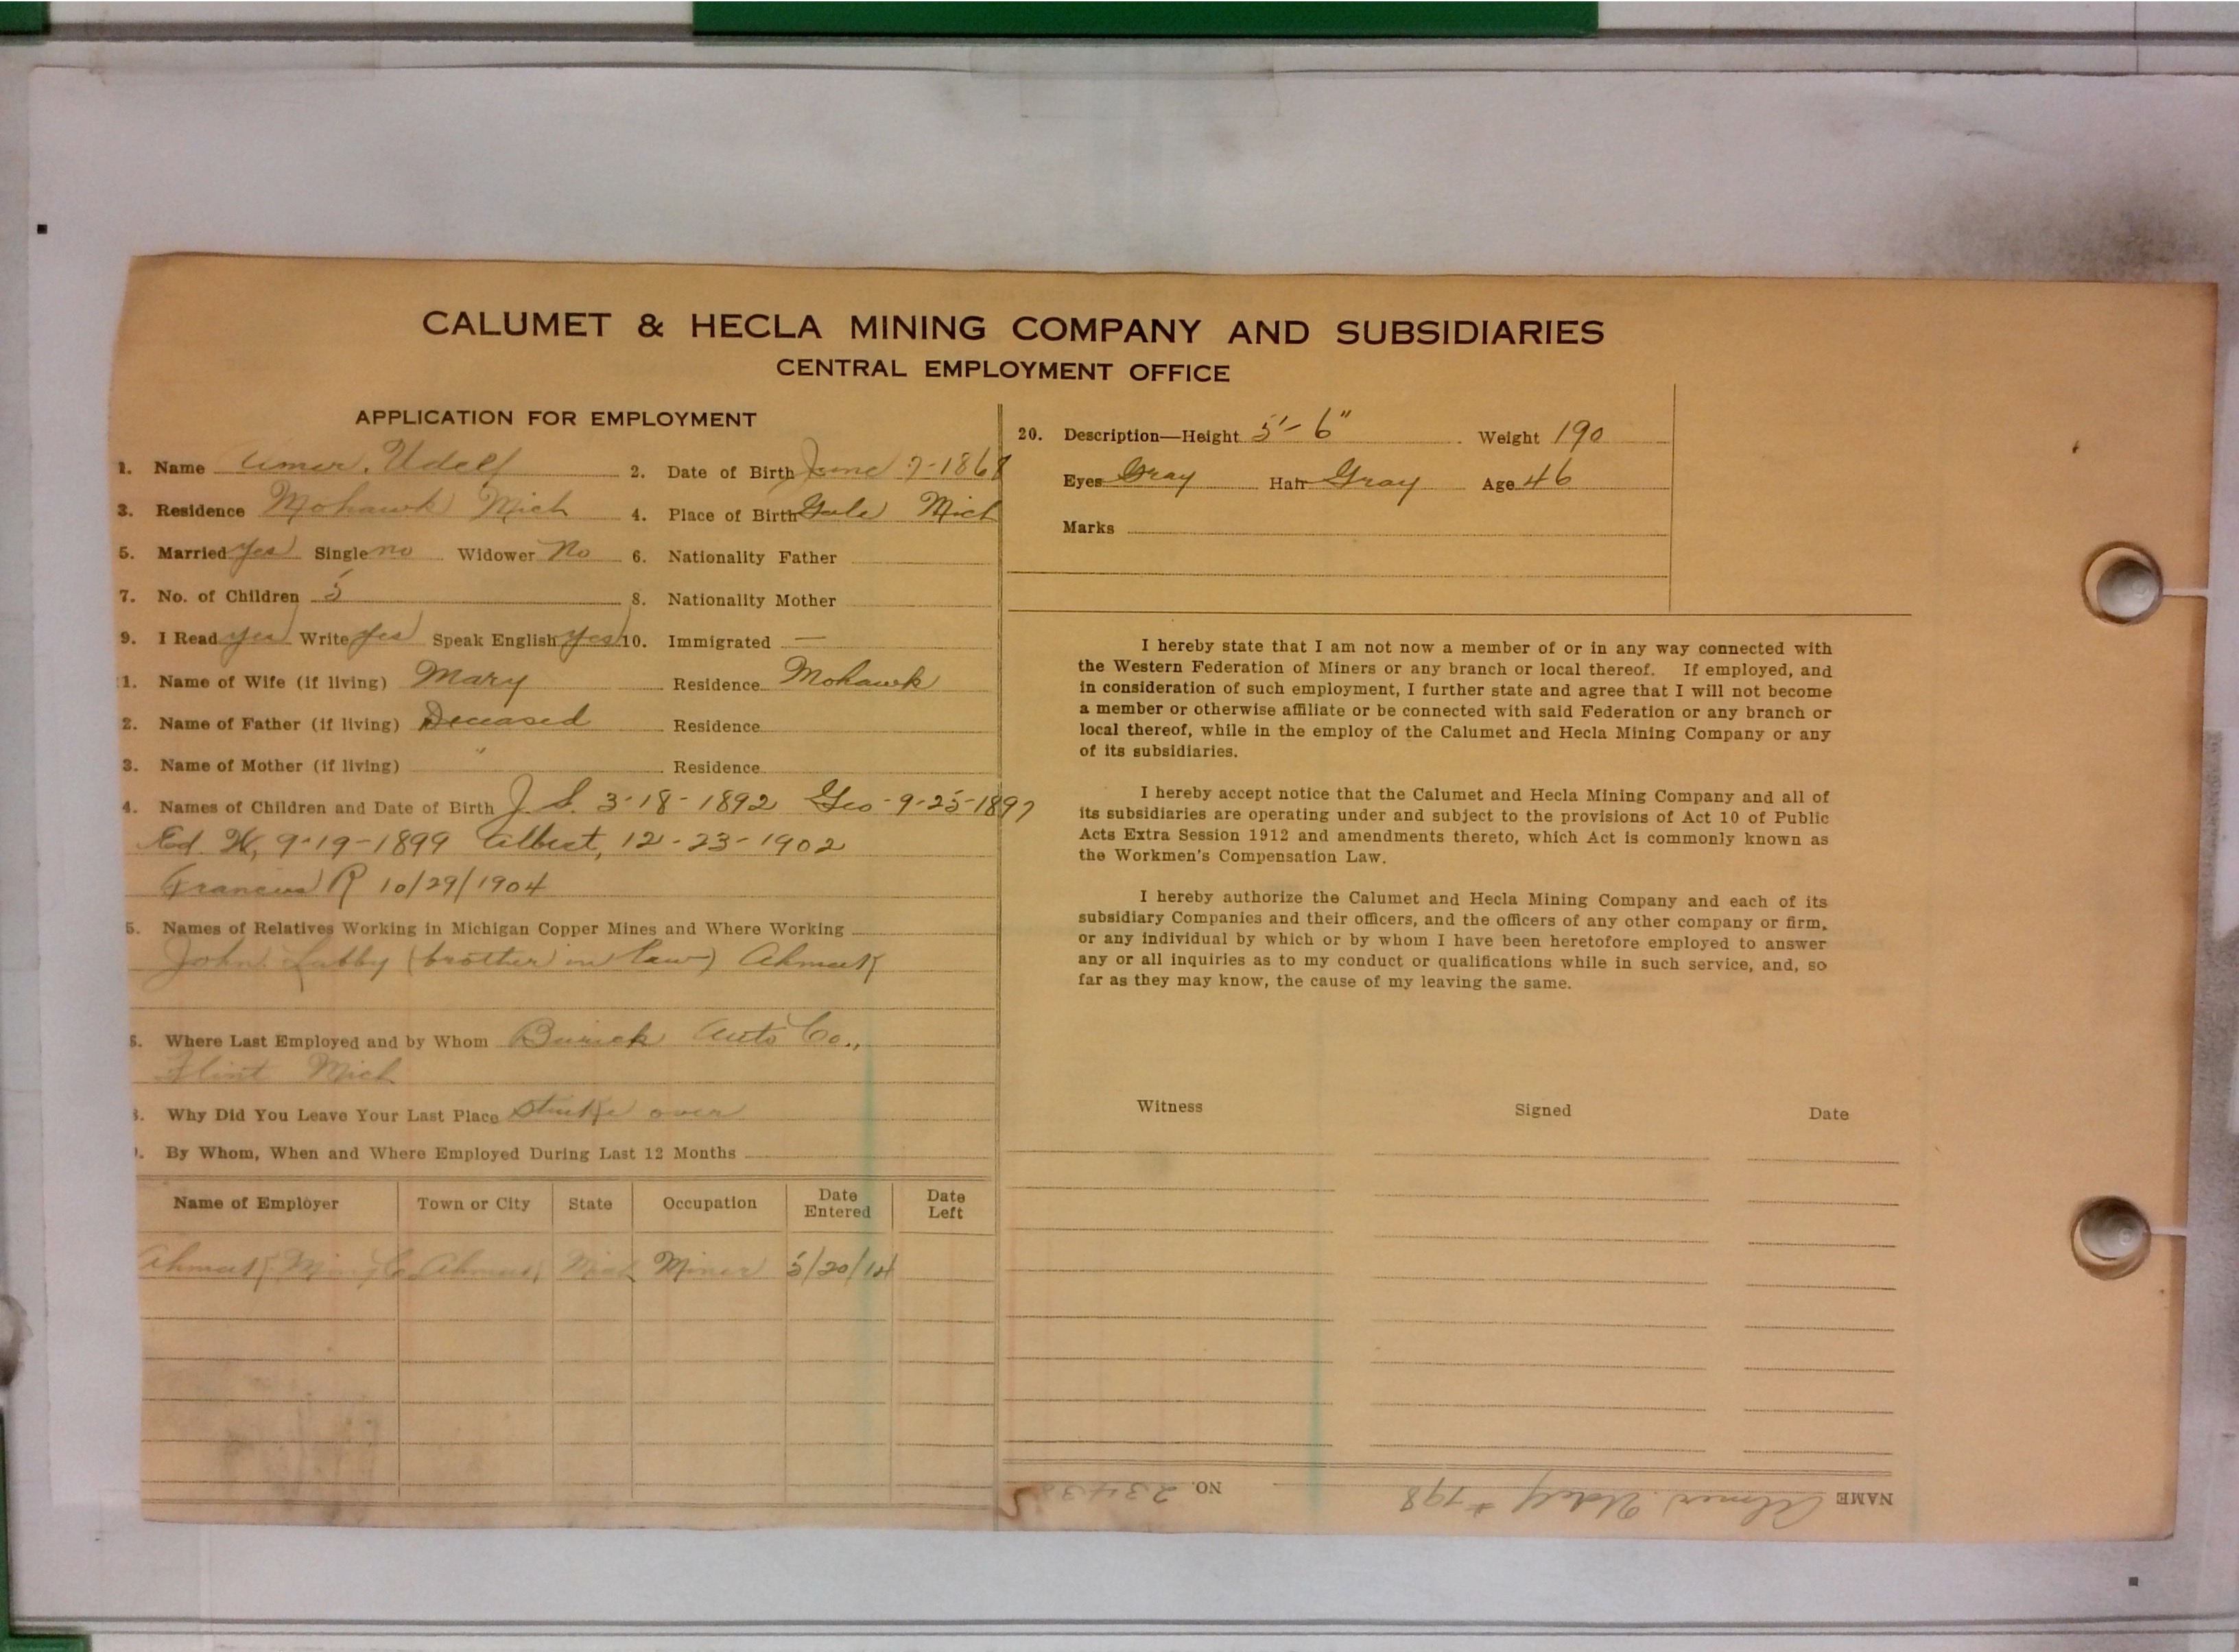 CALUMET & HECLA MINING COMPANY AND SUBSIDIARIES
CENTRAL EMPLOYMENT OFFICE
APPLICATION FOR EMPLOYMENT
1. Name 2. Date of Birth June 7-1868
3. Residence Mohawk Mich 4. Place of Birth Mich
5. Married Yes Single no Widower No 6. Nationality Father
7. No. of Children 5 8. Nationality Mother
9. I Read yes Write yes Speak English yes 10. Immigrated —
1. Name of Wife (if living) Mary Residence Mohawk
2. Name of Father (if living) Deceased Residence
3. Name of Mother (if living) " Residence
4. Names of Children and Date of Birth J. S. 3-18-1892 Geo - 9-25-1897
Ed. W, 9-19-1899 Albert, 12-23-1902
Francis R 10/29/1904
5. Names of Relatives Working in Michigan Copper Mines and Where Working
John Labby (brother in law) Ahmeek
6. Where Last Employed and by Whom Buick Auto Co.,
Flint Mich
8. Why Did You Leave Your Last Place Strike over
. By Whom, When and Where Employed During Last 12 Months
Name of Employer Town or City State Occupation Date Entered Date Left
Ahmeek Ming Co Ahmeek Mich Miner 5/20/14
20. Description—Height 5'- 6" Weight 190
Eyes Gray Hair Gray Age 46
Marks
I hereby state that I am not now a member of or in any way connected with
the Western Federation of Miners or any branch or local thereof. If employed, and
in consideration of such employment, I further state and agree that I will not become
a member or otherwise affiliate or be connected with said Federation or any branch or
local thereof, while in the employ of the Calumet and Hecla Mining Company or any
of its subsidiaries.
I hereby accept notice that the Calumet and Hecla Mining Company and all of
its subsidiaries are operating under and subject to the provisions of Act 10 of Public
Acts Extra Session 1912 and amendments thereto, which Act is commonly known as
the Workmen's Compensation Law.
I hereby authorize the Calumet and Hecla Mining Company and each of its
subsidiary Companies and their officers, and the officers of any other company or firm,
or any individual by which or by whom I have been heretofore employed to answer
any or all inquiries as to my conduct or qualifications while in such service, and, so
far as they may know, the cause of my leaving the same.
Witness Signed Date
NAME #798 NO.